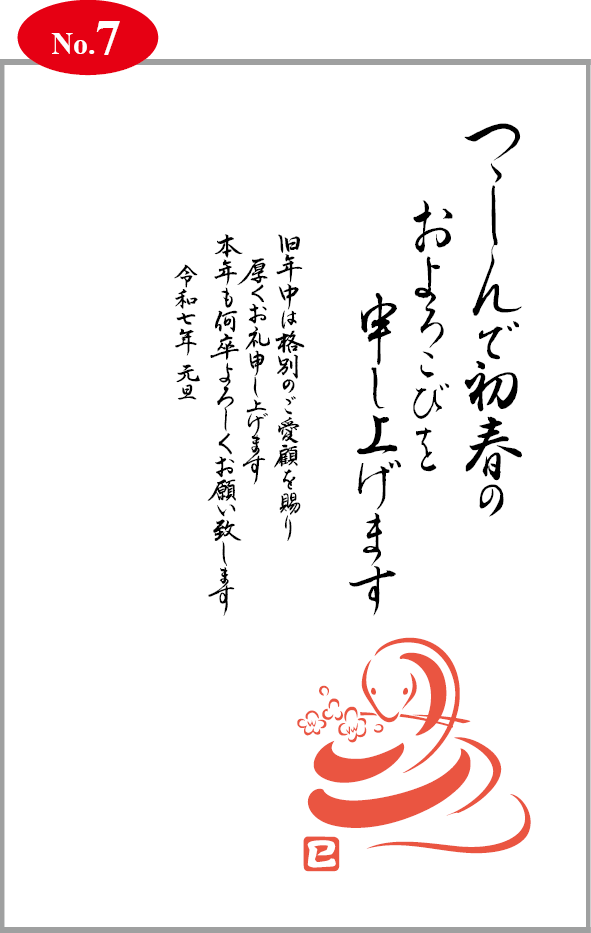 No.7
つゝしんで初春の
およろこびを
申し上げます
旧年中は格別のご愛顧を賜り
厚くお礼申し上げます
本年も何卒よろしくお願い致します
令和七年 元旦
巳